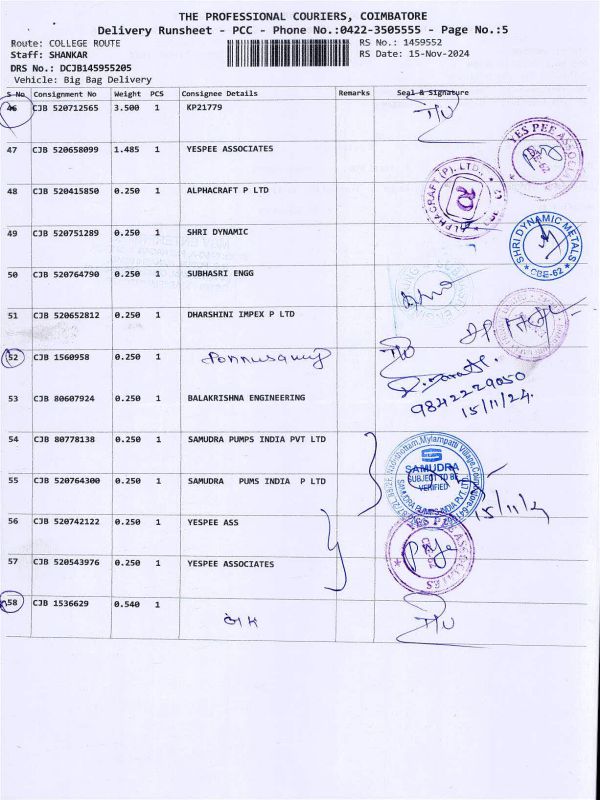 THE PROFESSIONAL COURIERS, COIMBATORE
Delivery Runsheet - PCC - Phone No.:0422-3505555 - Page No.:5
Route: COLLEGE ROUTE
RS No.: 1459552
Staff: SHANKAR
RS Date: 15-Nov-2024
DRS No.: DCJB145955205
Vehicle: Big Bag Delivery
S No Consignment No Weight PCS Consignee Details Remarks Seal & Signature
46 CJB 520712565 3.500 1 KP21779
47 CJB 520658099 1.485 1 YESPEE ASSOCIATES
YES PEE ASSOCIATES
48 CJB 520415850 0.250 1 ALPHACRAFT P LTD
ALPHACRAFT (P). LTD.
49 CJB 520751289 0.250 1 SHRI DYNAMIC
SHRI DYNAMIC METALS
CBE-62
50 CJB 520764790 0.250 1 SUBHASRI ENGG
51 CJB 520652812 0.250 1 DHARSHINI IMPEX P LTD
52 CJB 1560958 0.250 1 Ponnusamy
53 CJB 80607924 0.250 1 BALAKRISHNA ENGINEERING
9842229050
15/11/24.
54 CJB 80778138 0.250 1 SAMUDRA PUMPS INDIA PVT LTD
SAMUDRA
SUBJECT TO BE
VERIFIED
SAMUDRA PUMPS INDIA PVT. LTD
55 CJB 520764300 0.250 1 SAMUDRA PUMS INDIA P LTD
15/11/2
56 CJB 520742122 0.250 1 YESPEE ASS
YES PEE ASSOCIATES
57 CJB 520543976 0.250 1 YESPEE ASSOCIATES
58 CJB 1536629 0.540 1